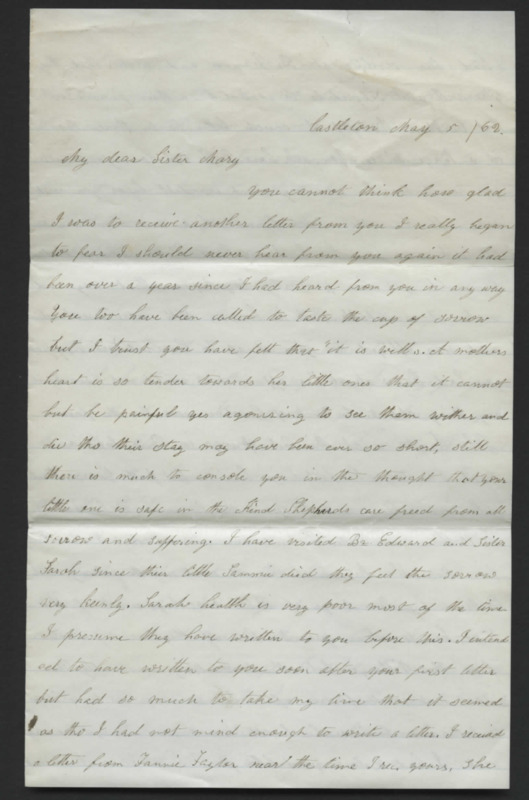 Castleton May 5 /62.
My dear Sister Mary
You cannot think how glad
I was to receive another letter from you I really began
to fear I should never hear from you again it had
been over a year since I had heard from you in any way
You too have been called to taste the cup of sorrow
but I trust you have felt that "it is well". A mothers
heart is so tender towards her little ones that it cannot
but be painful yes agonising to see them wither and
die tho their stay may have been ever so short, still
there is much to console you in the thought that your
little one is safe in the Kind Shepherds care freed from all
sorrow and suffering. I have visited Br Edward and Sister
Sarah since their little Sammie died they feel the sorrow
very keenly. Sarah health is very poor most of the time
I presume they have written to you before this. I intend
ed to have written to you soon after your first letter
but had so much to take my time that it seemed
as tho I had not mind enough to write a letter. I received
a letter from Fannie Taylor near the time I rec. yours, She